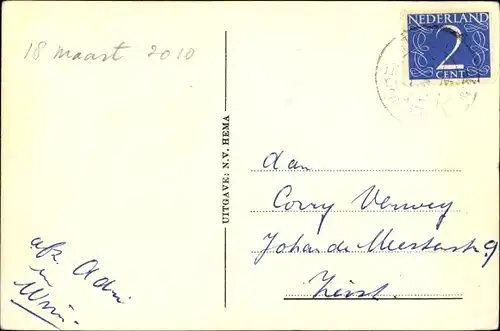 18 maart 2010
NEDERLAND
2
CENT
UITGAVE: N.V. HEMA
Aan
Corry Verwey
Johan de Meesterstr. 9
Zeist.
afz. Adri
en
Wim.